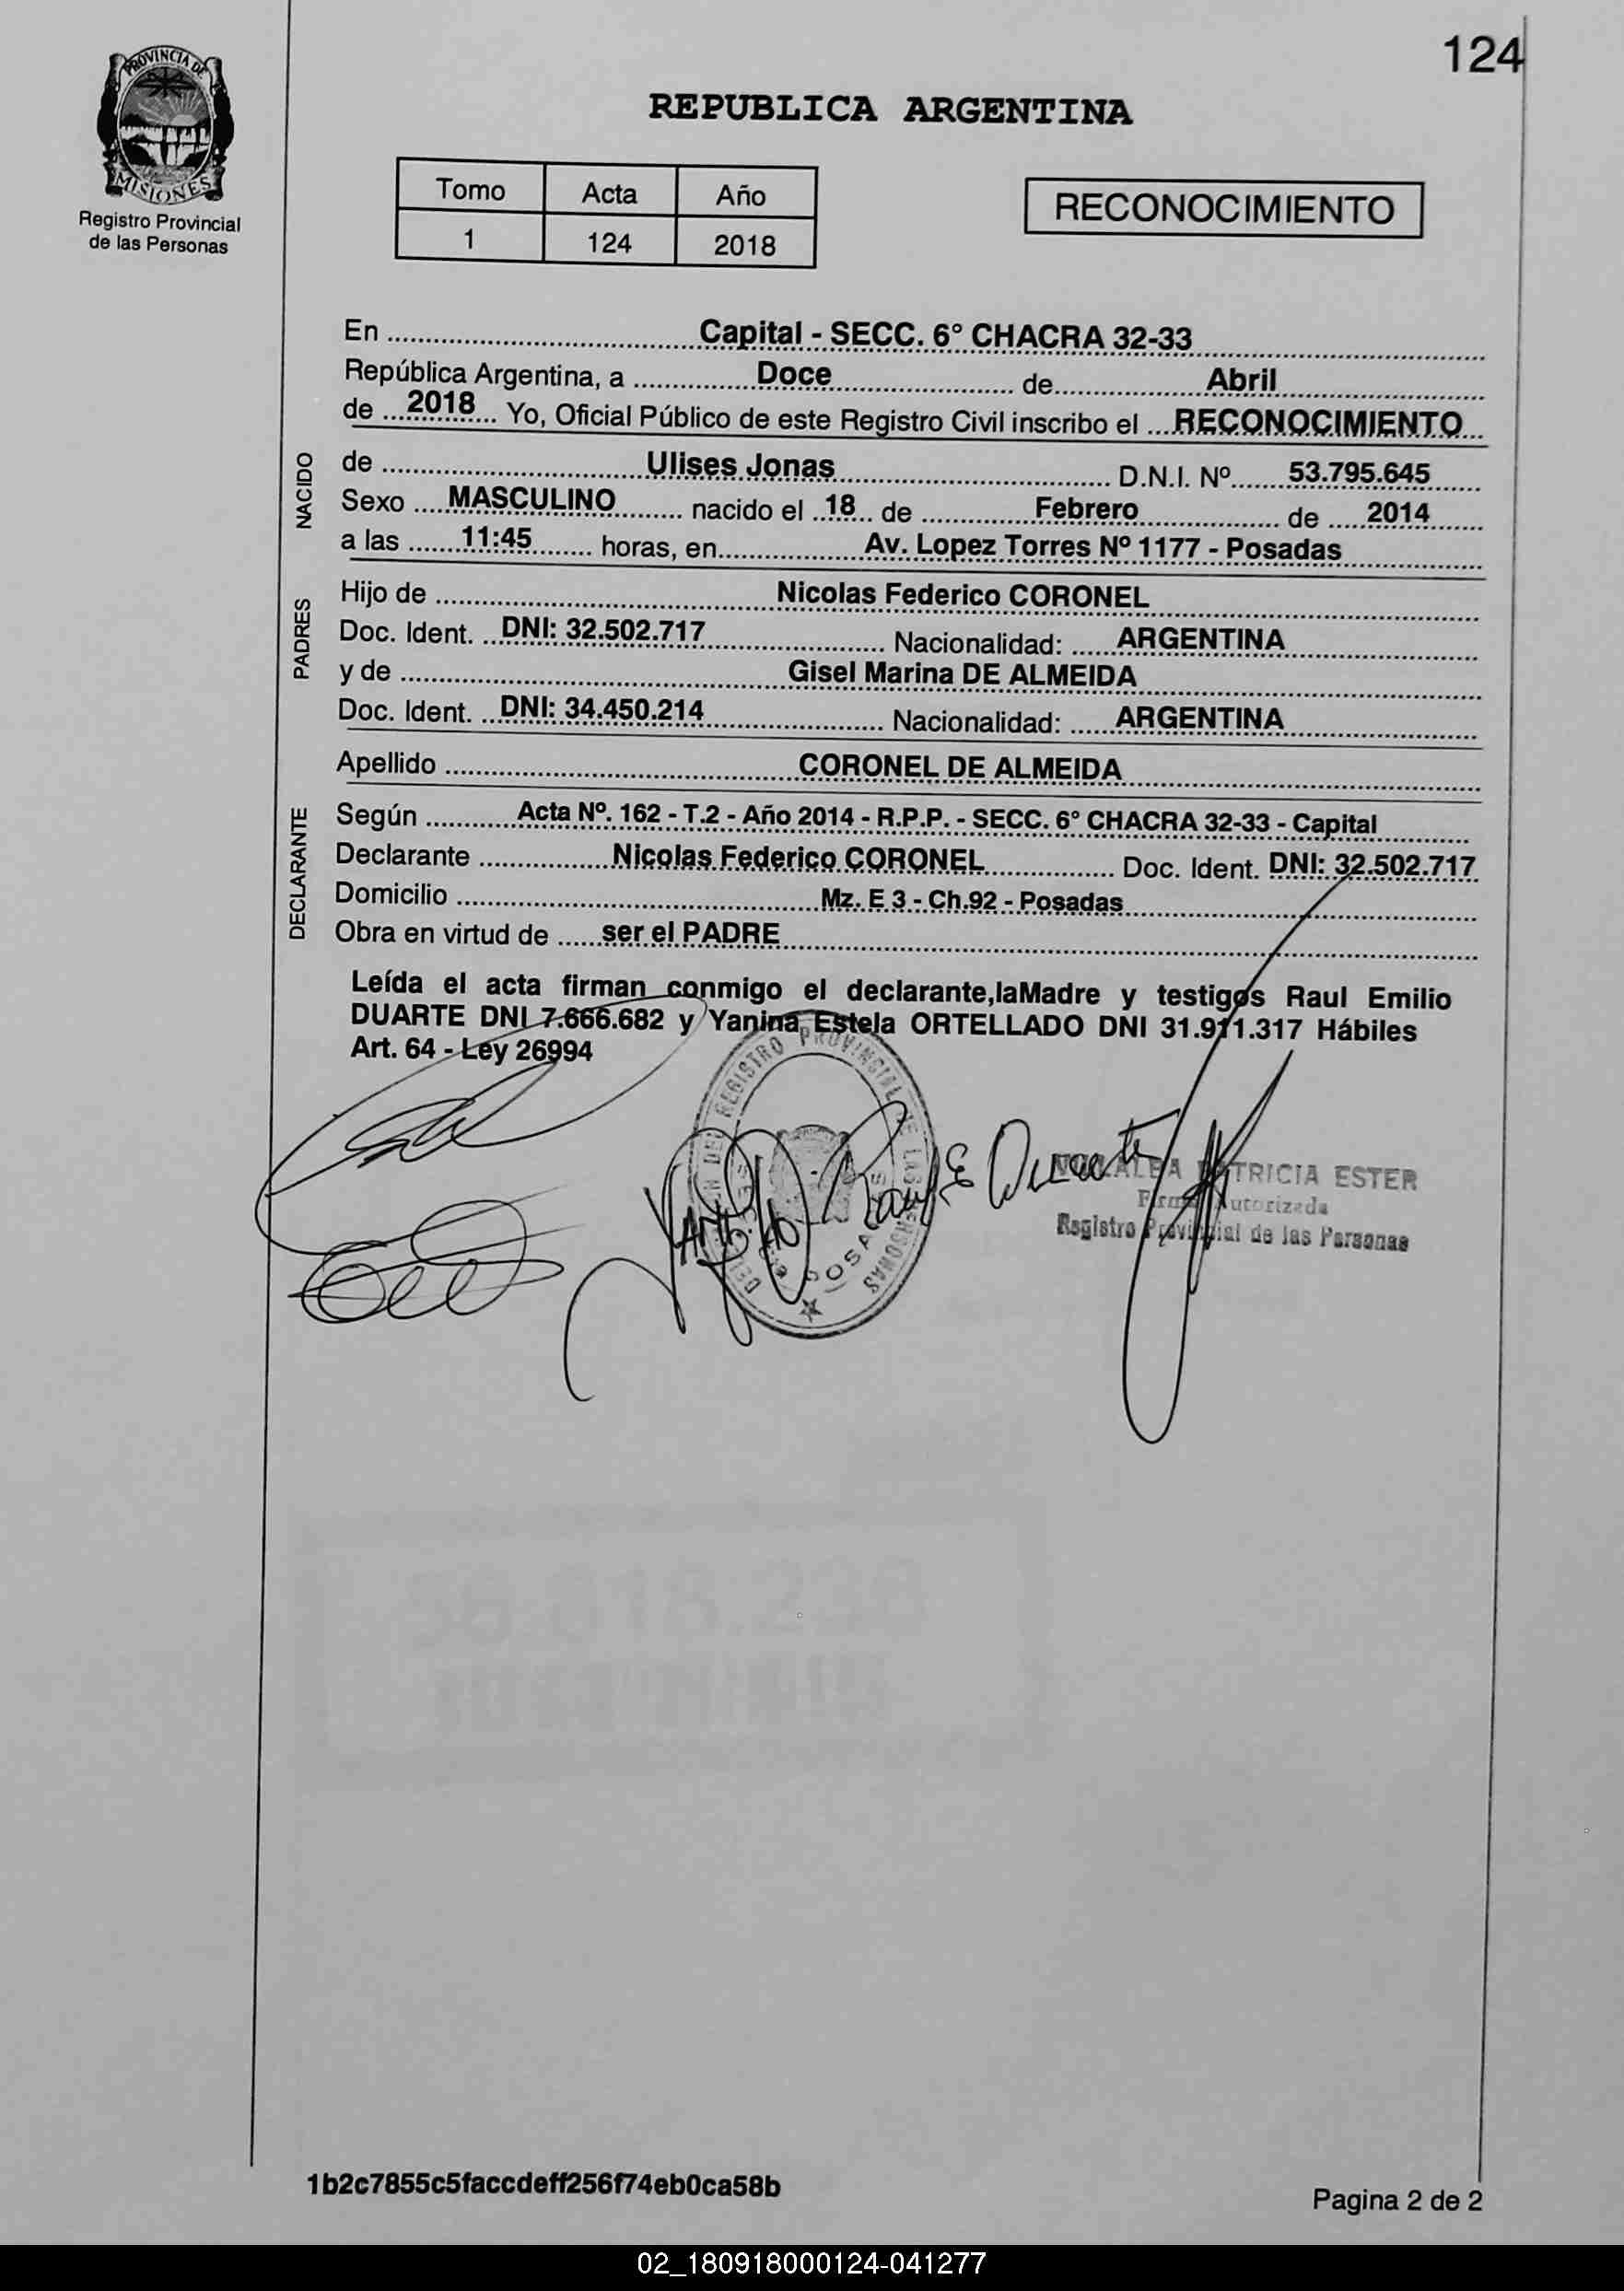 124
PROVINCIA DE
MISIONES
Registro Provincial
de las Personas
REPUBLICA ARGENTINA
Tomo Acta Año
1 124 2018
RECONOCIMIENTO
En Capital - SECC. 6° CHACRA 32-33
República Argentina, a Doce de Abril
de 2018 Yo, Oficial Público de este Registro Civil inscribo el RECONOCIMIENTO
NACIDO
de Ulises Jonas D.N.I. Nº 53.795.645
Sexo MASCULINO nacido el 18 de Febrero de 2014
a las 11:45 horas, en Av. Lopez Torres Nº 1177 - Posadas
PADRES
Hijo de Nicolas Federico CORONEL
Doc. Ident. DNI: 32.502.717 Nacionalidad: ARGENTINA
y de Gisel Marina DE ALMEIDA
Doc. Ident. DNI: 34.450.214 Nacionalidad: ARGENTINA
Apellido CORONEL DE ALMEIDA
DECLARANTE
Según Acta Nº. 162 - T.2 - Año 2014 - R.P.P. - SECC. 6° CHACRA 32-33 - Capital
Declarante Nicolas Federico CORONEL Doc. Ident. DNI: 32.502.717
Domicilio Mz. E 3 - Ch.92 - Posadas
Obra en virtud de ser el PADRE
Leída el acta firman conmigo el declarante,laMadre y testigos Raul Emilio
DUARTE DNI 7.666.682 y Yanina Estela ORTELLADO DNI 31.911.317 Hábiles
Art. 64 - Ley 26994
REGISTRO PROVINCIAL DE LAS PERSONAS
POSADAS
Raul E Duarte
PATRICIA ESTER
Firma Autorizada
Registro Provincial de las Personas
1b2c7855c5faccdeff256f74eb0ca58b
Pagina 2 de 2
02_180918000124-041277